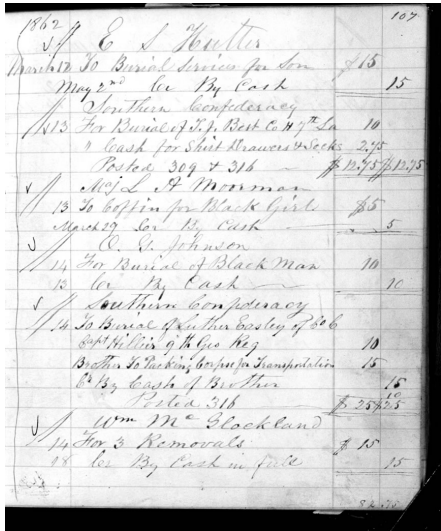 107
1862
E S Hutter
March 12 To Burial Services for Son $15
May 2nd Cr By Cash 15
Southern Confederacy
13 For Burial of T. J. Best Co H 7th La 10
" Cash for Shirt Drawers & Socks 2.75
Posted 309 & 316 $12.75 $12.75
Maj L A Moorman
13 To Coffin for Black Girl $5
March 29 Cr By Cash 5
O. G. Johnson
14 For Burial of Black Man 10
13 Cr By Cash 10
Southern Confederacy
14 To Burial of Luther Easley of Co C
Capt 9th Geo Reg 10
Brother To Packing Corpse for Transportation 15
Cr By Cash of Brother 15
10
Posted 316 $25 $25
Wm Mc
14 For 3 Removals $15
18 Cr By Cash in full 15